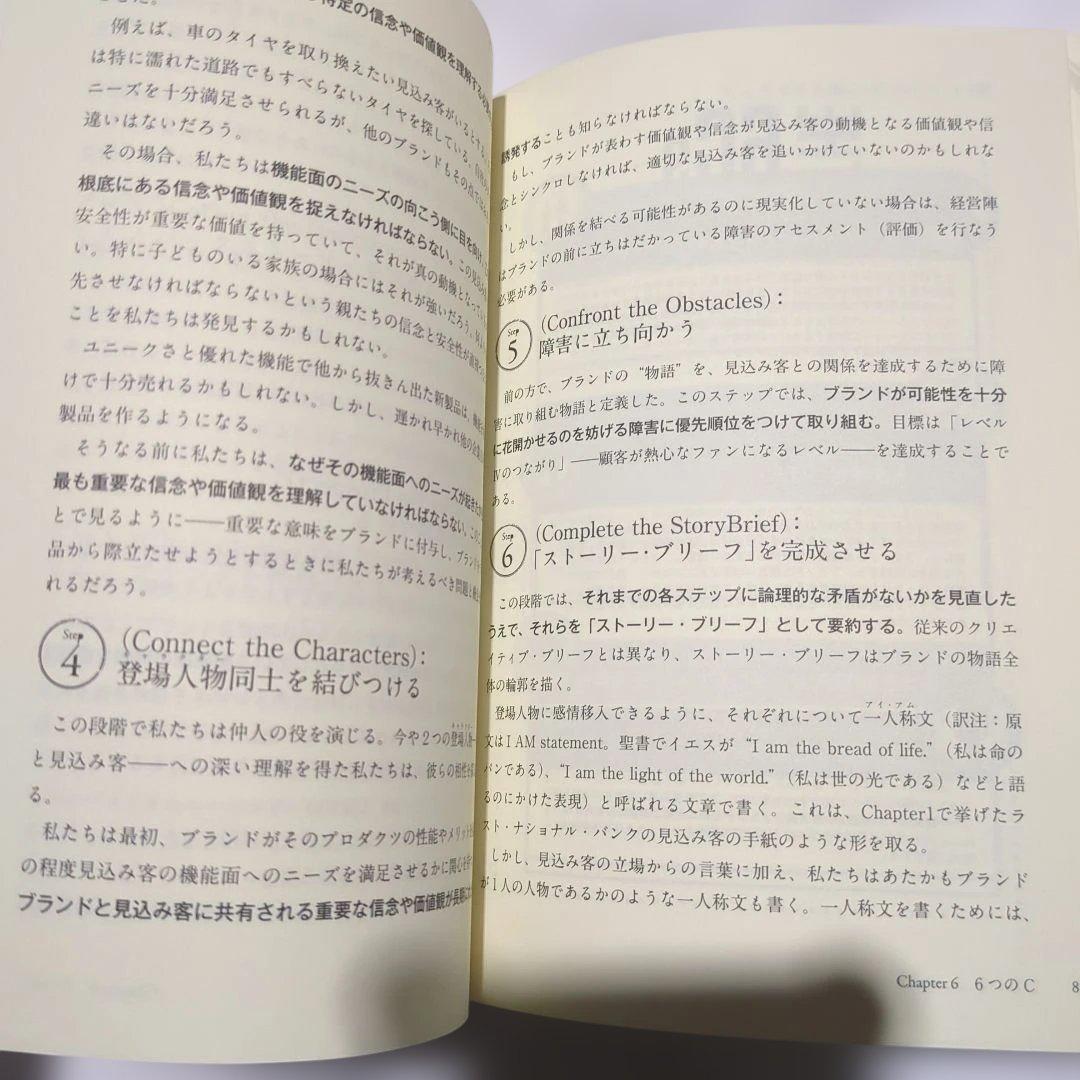 特定の信念や価値観を理解する
例えば、車のタイヤを取り換えたい見込み客がいるとする。
は特に濡れた道路でもすべらないタイヤを探している。
ニーズを十分満足させられるが、他のブランドもその点では
違いはないだろう。
その場合、私たちは機能面のニーズの向こう側に目を向け、
根底にある信念や価値観を捉えなければならない。この見込み
安全性が重要な価値を持っていて、それが真の動機となってい
い。特に子どものいる家族の場合にはそれが強いだろう。
先させなければならないという親たちの信念と安全性が
ことを私たちは発見するかもしれない。
ユニークさと優れた機能で他から抜きん出た新製品は、
けで十分売れるかもしれない。しかし、遅かれ早かれ他の企業
製品を作るようになる。
そうなる前に私たちは、なぜその機能面へのニーズが起きた
最も重要な信念や価値観を理解していなければならない。
とで見るように——重要な意味をブランドに付与し、ブランド
品から際立たせようとするときに私たちが考えるべき問題と
れるだろう。
Step 4 (Connect the Characters):
登場人物同士を結びつける
この段階で私たちは仲人の役を演じる。今や2つの登場人物
と見込み客——への深い理解を得た私たちは、彼らの相性を
る。
私たちは最初、ブランドがそのプロダクツの性能やメリット
の程度見込み客の機能面へのニーズを満足させるかに関心を
ブランドと見込み客に共有される重要な信念や価値観が長期に
誘発することも知らなければならない。
もし、ブランドが表わす価値観や信念が見込み客の動機となる価値観や信
念とシンクロしなければ、適切な見込み客を追いかけていないのかもしれな
い。
しかし、関係を結べる可能性があるのに現実化していない場合は、経営陣
はブランドの前に立ちはだかっている障害のアセスメント（評価）を行なう
必要がある。
Step 5 (Confront the Obstacles):
障害に立ち向かう
前の方で、ブランドの“物語”を、見込み客との関係を達成するために障
害に取り組む物語と定義した。このステップでは、ブランドが可能性を十分
に花開かせるのを妨げる障害に優先順位をつけて取り組む。目標は「レベル
Ⅳのつながり」——顧客が熱心なファンになるレベル——を達成することで
ある。
Step 6 (Complete the StoryBrief):
「ストーリー・ブリーフ」を完成させる
この段階では、それまでの各ステップに論理的な矛盾がないかを見直した
うえで、それらを「ストーリー・ブリーフ」として要約する。従来のクリエ
イティブ・ブリーフとは異なり、ストーリー・ブリーフはブランドの物語全
体の輪郭を描く。
アイ・アム
登場人物に感情移入できるように、それぞれについて一人称文（訳注：原
文はI AM statement。聖書でイエスが“I am the bread of life.”（私は命の
パンである）、“I am the light of the world.”（私は世の光である）などと語
るのにかけた表現）と呼ばれる文章で書く。これは、Chapter1で挙げたラ
スト・ナショナル・バンクの見込み客の手紙のような形を取る。
しかし、見込み客の立場からの言葉に加え、私たちはあたかもブランド
が1人の人物であるかのような一人称文も書く。一人称文を書くためには、
Chapter 6 6つのC 8